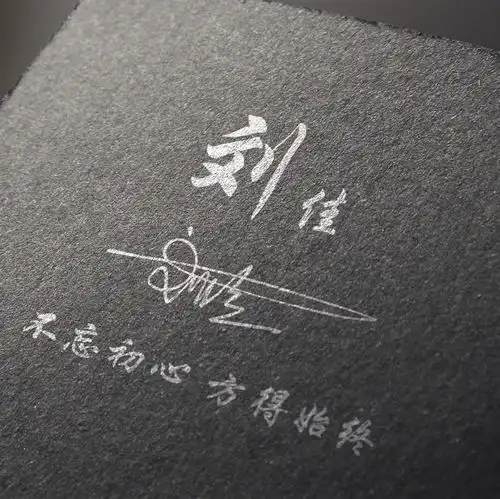 刘佳
不忘初心 方得始终